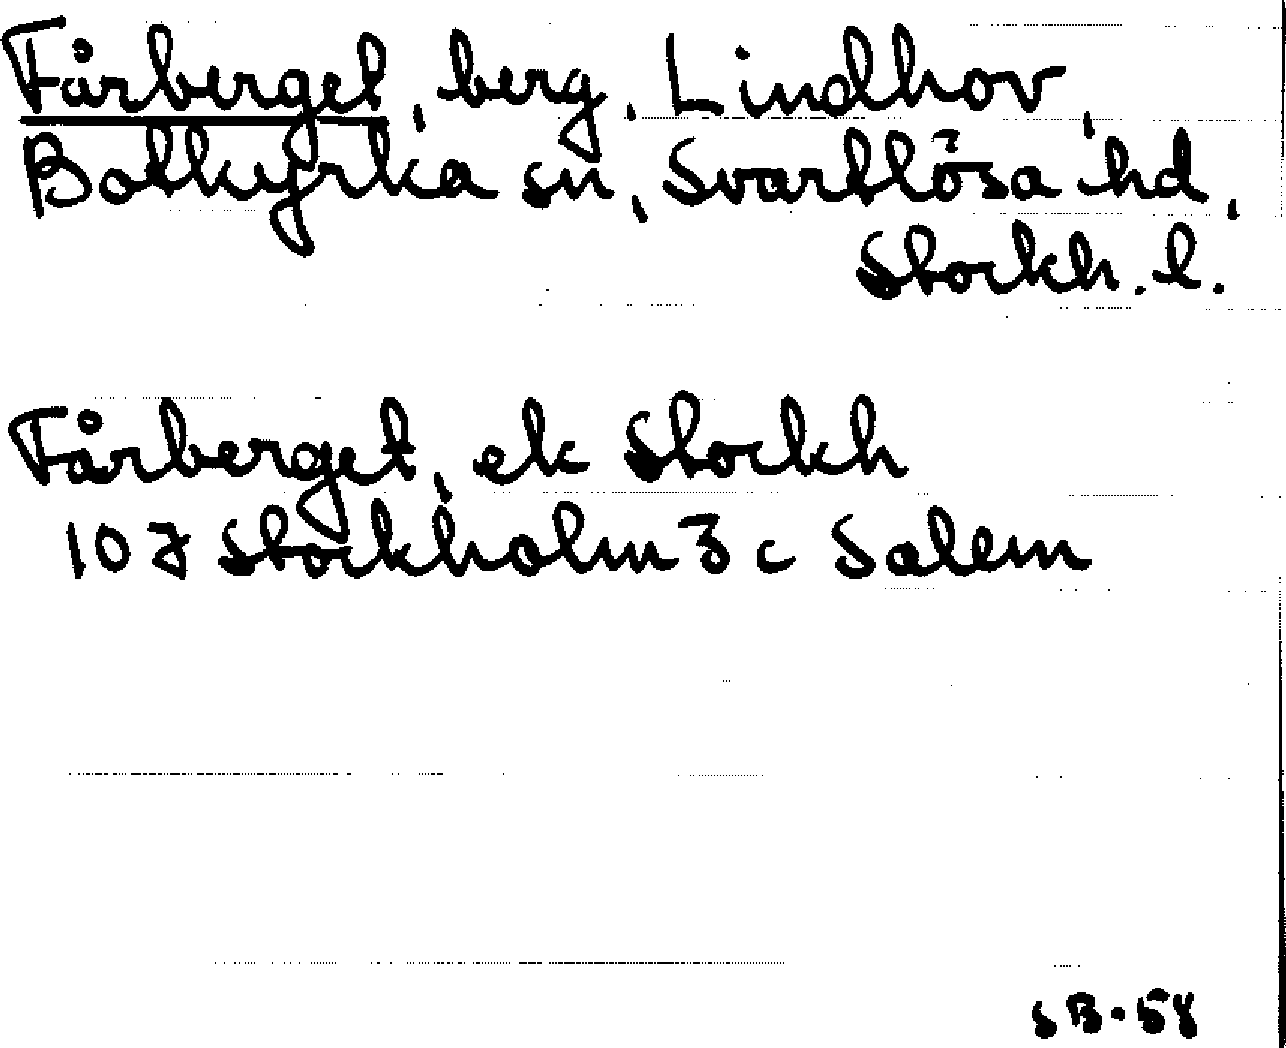 Fårberget, berg, Lindhov,
Botkyrka sn, Svartlösa hd,
Stockh. l.
Fårberget, ek Stockh
10 J Stockholm 3 c Salem
SB-58